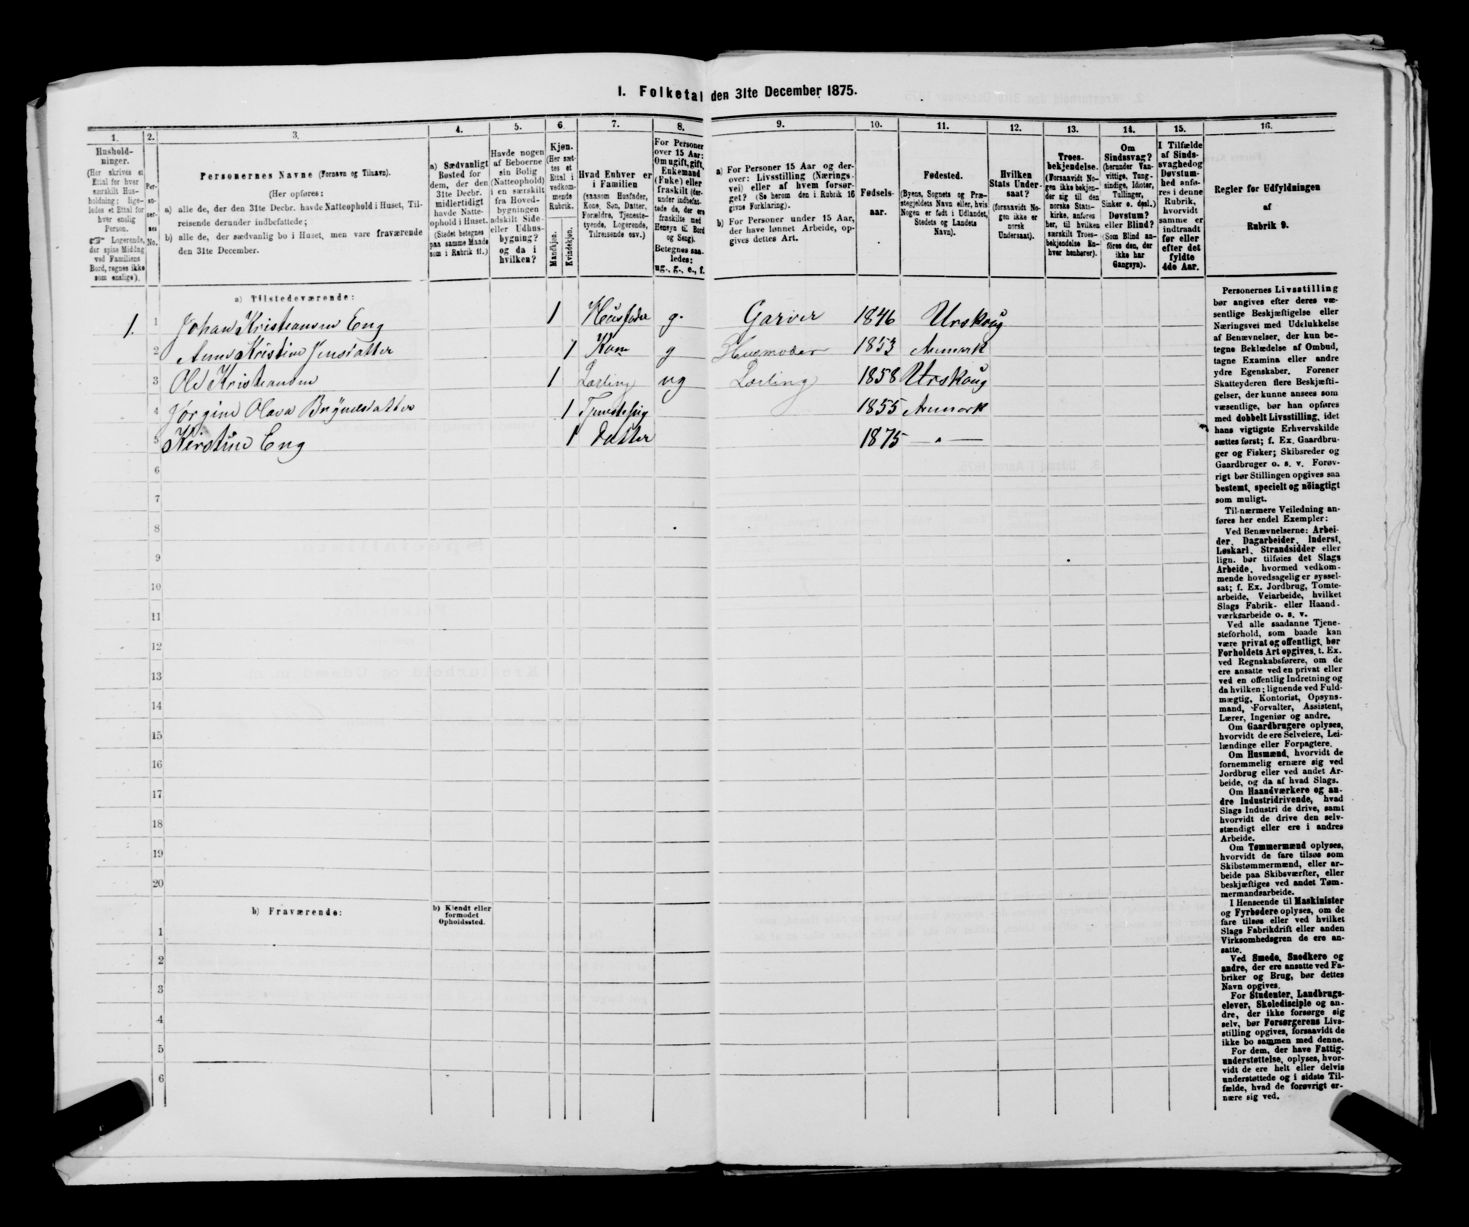 I. Folketal den 31te December 1875.
1. 2. 3. 4. 5. 6 7. 8. 9. 10. 11. 12. 13. 14. 15. 16.
Hushold-
ninger.
(Her skrives et
Ettal for hver
særskilt Hus-
holdning; lige-
ledes et Ettal for
hver enslig
Person.
☞ Logerende,
der spise Middag
ved Familiens
Bord, regnes ikke
som enslige).
Per-
so-
ner-
nes
No.
Personernes Navne (Fornavn og Tilnavn).
(Her opføres:
a) alle de, der den 31te Decbr. havde Natteophold i Huset, Til-
reisende derunder indbefattede;
b) alle de, der sædvanlig bo i Huset, men vare fraværende
den 31te December.
a) Sædvanligt
Bosted for
dem, der den
31te Decbr.
midlertidigt
havde Natte-
ophold i Huset.
(Stedet betegnes
paa samme Maade
som i Rubrik 11.)
Havde nogen
af Beboerne
sin Bolig
(Natteophold)
i en særskilt
fra Hoved-
bygningen
adskilt Side-
eller Udhus-
bygning?
og da i
hvilken?
Kjøn.
(Her sæt-
tes et
Ettal i
vedkom-
mende
Rubrik.
Mandkjøn.
Kvindekjøn.
Hvad Enhver er
i Familien
(saasom Husfader,
Kone, Søn, Datter,
Forældre, Tjeneste-
tyende, Logerende,
Tilreisende osv.)
For Personer
over 15 Aar:
Om ugift, gift,
Enkemand
(Enke) eller
fraskilt (der-
under indbefat-
tede de, der ere
fraskilte med
Hensyn til Bord
og Seng).
Betegnes saa-
ledes:
ug., g., e., f.
a) For Personer 15 Aar og der-
over: Livsstilling (Nærings-
vei) eller af hvem forsør-
get? (Se herom den i Rubrik 16
givne Forklaring).
b) For Personer under 15 Aar,
der have lønnet Arbeide, op-
gives dettes Art.
Fødsels-
aar.
Fødested.
(Byens, Sognets og Præ-
stegjeldets Navn eller, hvis
Nogen er født i Udlandet,
Stedets og Landets
Navn).
Hvilken
Stats Under-
saat?
(forsaavidt No-
gen ikke er
norsk
Undersaat).
Troes-
bekjendelse.
(Forsaavidt No-
gen ikke bekjen-
der sig til den
norske Stats-
kirke, anføres
her, til hvilken
særskilt Troes-
bekjendelse En-
hver henhører).
Om
Sindssvag?
(herunder Van-
vittige, Tung-
sindige, Idioter,
Tullinger,
Sinker o. desl.)
Døvstum?
eller Blind?
(Som Blind an-
føres den, der
ikke har
Gangsyn).
I Tilfælde
af Sinds-
svaghedog
Døvstum-
hed anfø-
res i denne
Rubrik,
hvorvidt
samme er
indtraadt
før eller
efter det
fyldte
4de Aar.
Regler for Udfyldningen
af
Rubrik 9.
a) Tilstedeværende:
1. 1 Johan Kristiansen Eng 1 Husfader g. Garver 1846 Urskoug
2 Anne Kristine Jensdatter 1 Kone g Huusmoder 1853 Aremark
3 Ole Kristiansen 1 Lærling ug Lærling 1858 Urskoug
4 Jørgine Olava Brynilsdatter 1 Tjenestepig 1855 Aremark
5 Kirstine Eng 1 Datter 1875 — „ —
6
7
8
9
10
11
12
13
14
15
16
17
18
19
20
b) Fraværende:
b) Kjendt eller
formodet
Opholdssted.
1
2
3
4
5
6
Personernes Livsstilling
bør angives efter deres væ-
sentlige Beskjæftigelse eller
Næringsvei med Udelukkelse
af Benævnelser, der kun be-
tegne Beklædelse af Ombud,
tagne Examina eller andre
ydre Egenskaber. Forener
Skatteyderen flere Beskjæfti-
gelser, der kunne ansees som
væsentlige, bør han opføres
med dobbelt Livsstilling, idet
hans vigtigste Erhvervskilde
sættes først; f. Ex. Gaardbru-
ger og Fisker; Skibsreder og
Gaardbruger o. s. v. Forøv-
rigt bør Stillingen opgives saa
bestemt, specielt og nøiagtigt
som muligt.
Til nærmere Veiledning an-
føres her endel Exempler:
Ved Benævnelserne: Arbei-
der, Dagarbeider, Inderst,
Løskarl, Strandsidder eller
lign. bør tilføies det Slags
Arbeide, hvormed vedkom-
mende hovedsagelig er syssel-
sat; f. Ex. Jordbrug, Tomte-
arbeide, Veiarbeide, hvilket
Slags Fabrik- eller Haand-
værksarbeide o. s. v.
Ved alle saadanne Tjene-
steforhold, som baade kan
være privat og offentligt, bør
Forholdets Art opgives, t. Ex.
ved Regnskabsførere, om de
ere ansatte ved en privat eller
ved en offentlig Indretning og
da hvilken; lignende ved Fuld-
mægtig, Kontorist, Opsyns-
mand, Forvalter, Assistent,
Lærer, Ingeniør og andre.
Om Gaardbrugere oplyses,
hvorvidt de ere Selveiere, Lei-
lændinge eller Forpagtere.
Om Husmænd, hvorvidt de
fornemmelig ernære sig ved
Jordbrug eller ved andet Ar-
beide, og da af hvad Slags.
Om Haandværkere og an-
dre Industridrivende, hvad
Slags Industri de drive, samt
hvorvidt de drive den selv-
stændigt eller ere i andres
Arbeide.
Om Tømmermænd oplyses,
hvorvidt de fare tilsøs som
Skibstømmermænd, eller ar-
beide paa Skibsværfter, eller
beskjæftiges ved andet Tøm-
mermandsarbeide.
I Henseende til Maskinister
og Fyrbødere oplyses, om de
fare tilsøs eller ved hvilket
Slags Fabrikdrift eller anden
Virksomhedsgren de ere an-
satte.
Ved Smede, Snedkere og
andre, der ere ansatte ved Fa-
briker og Brug, bør dettes
Navn opgives.
For Studenter, Landbrugs-
elever, Skoledisciple og an-
dre, der ikke forsørge sig
selv, bør Forsørgerens Livs-
stilling opgives, forsaavidt de
ikke bo sammen med denne.
For dem, der have Fattig-
understøttelse, oplyses, hvor-
vidt de ere helt eller delvis
understøttede og i sidste Til-
fælde, hvad de forøvrigt er-
nære sig ved.